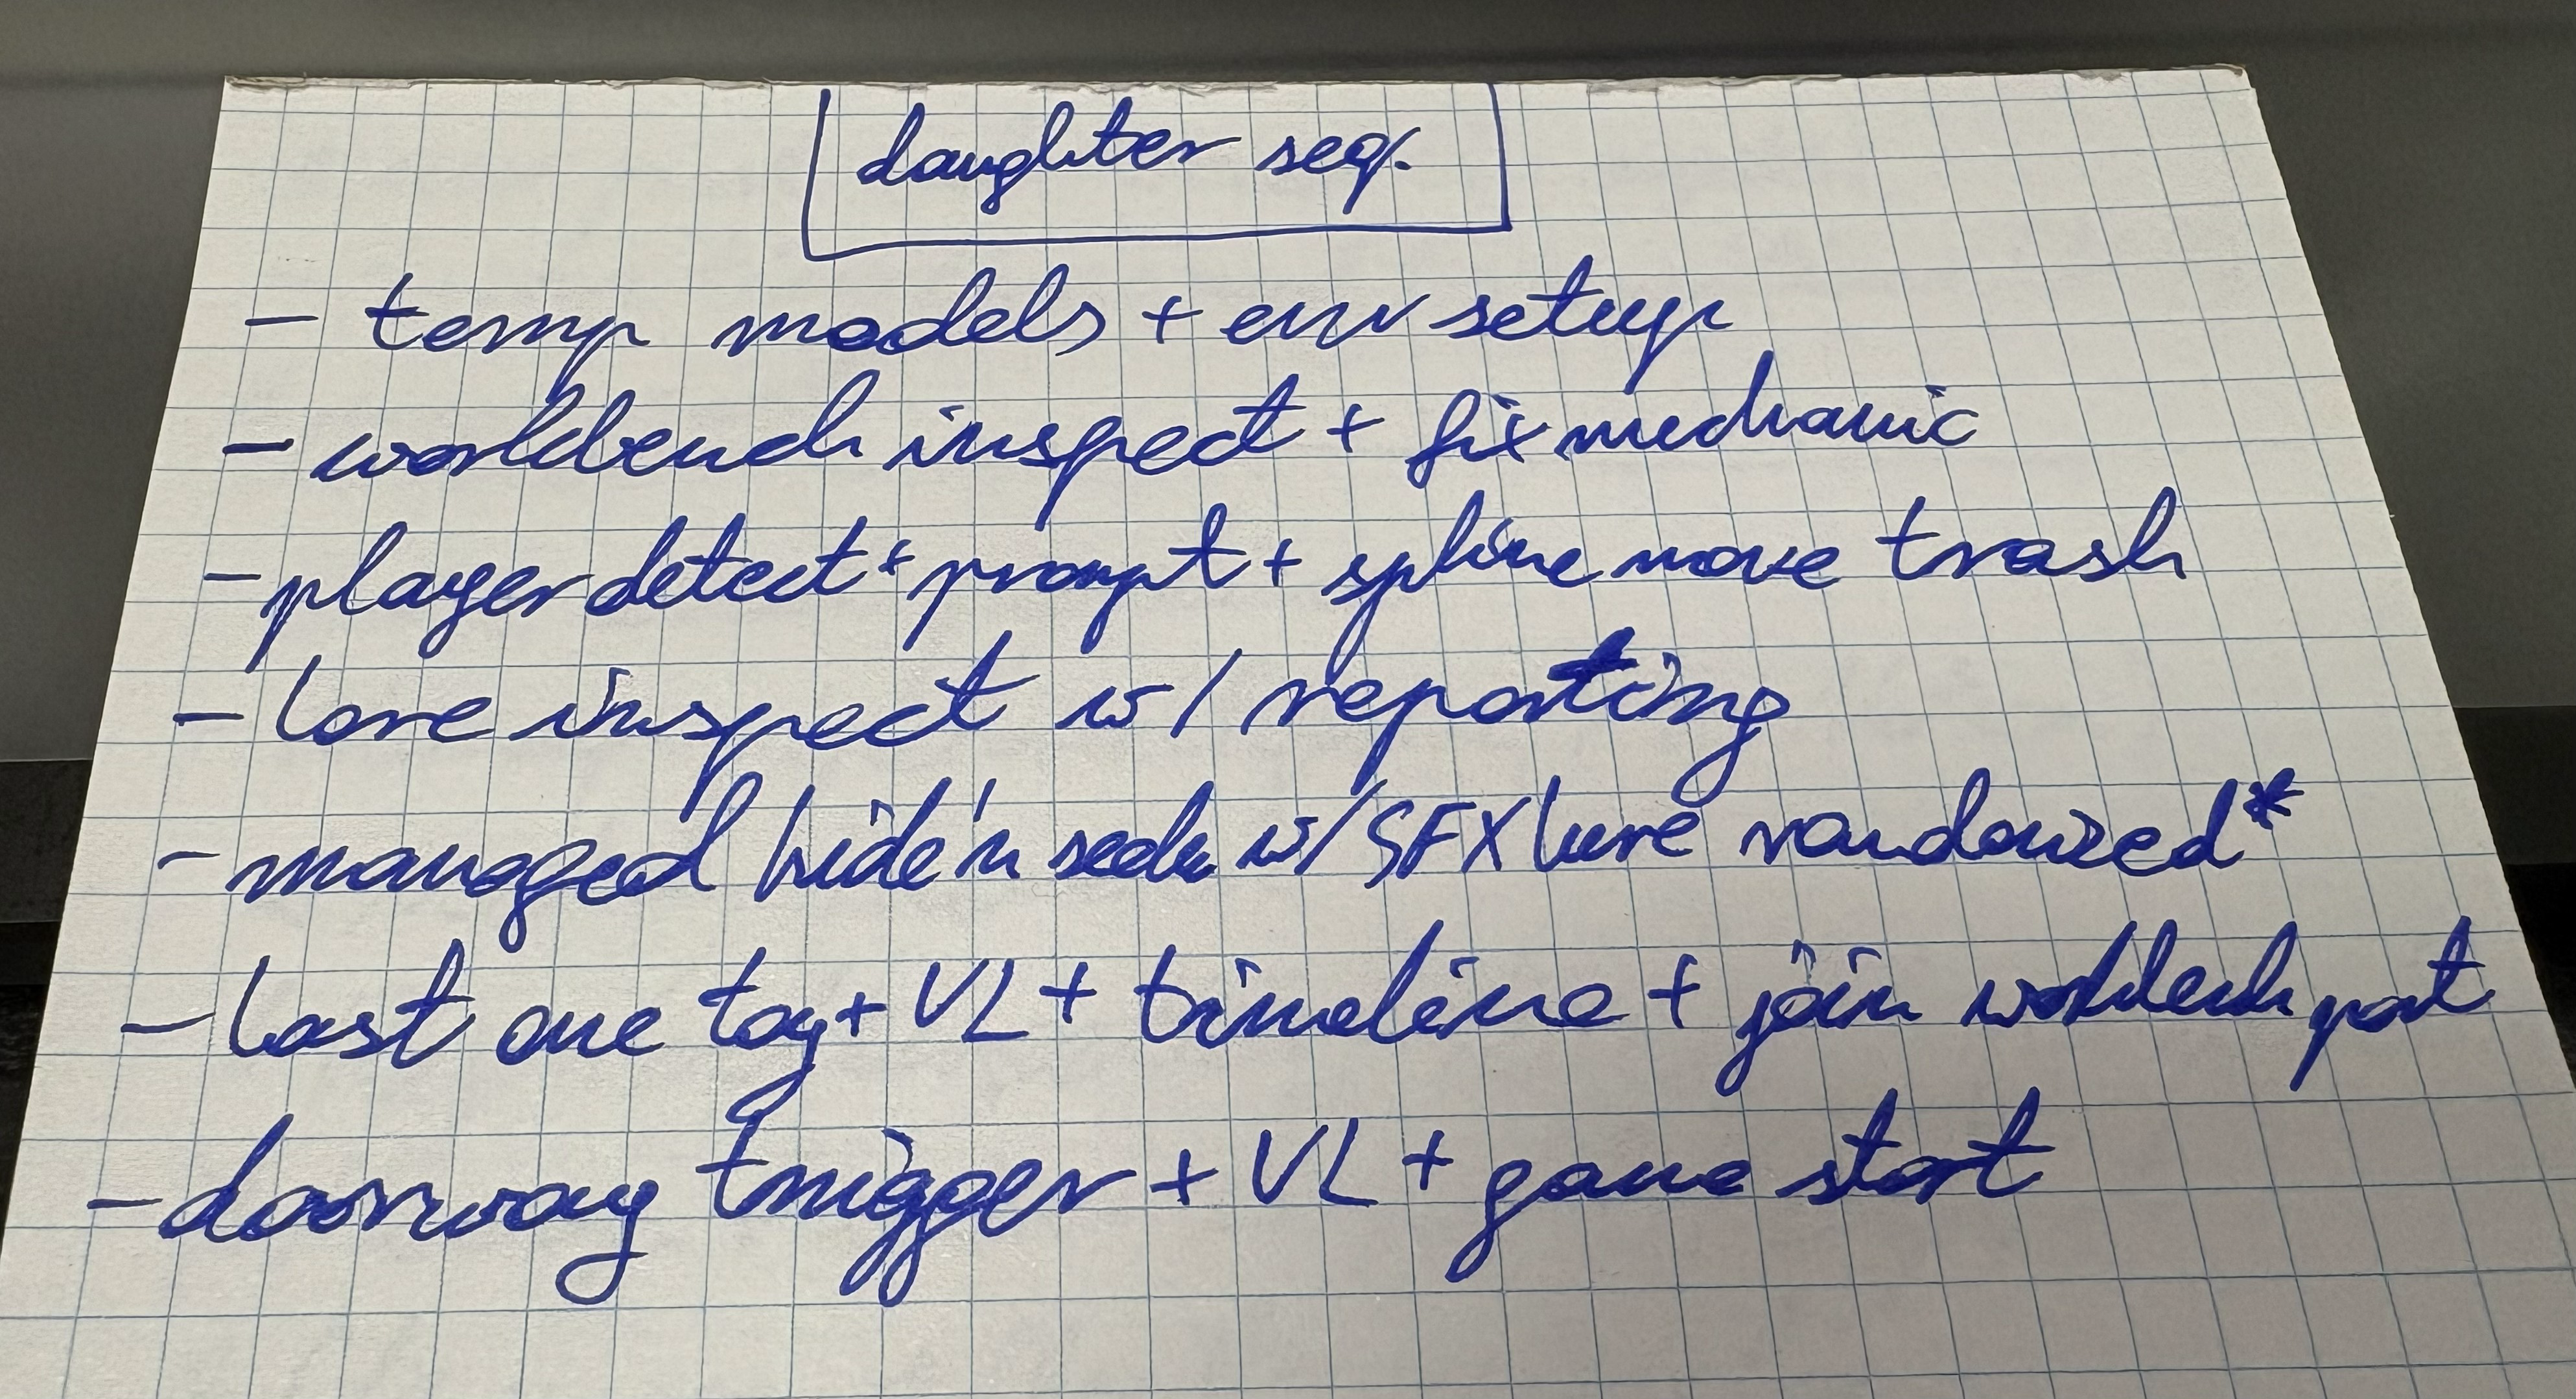 daughter seq.
- temp models + env setup
- workbench inspect + fix mechanic
- player detect + prompt + spline move trash
- lore inspect w/ reporting
- managed hide'n seek w/ SFX lure randomized*
- last one tag + VL + timeline + join workbench part
- doorway trigger + VL + game start